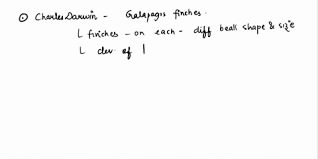 ⊙ Charles Darwin - Galapagos finches.
└ finches - on each - diff beak shape & size
└ dev. of |